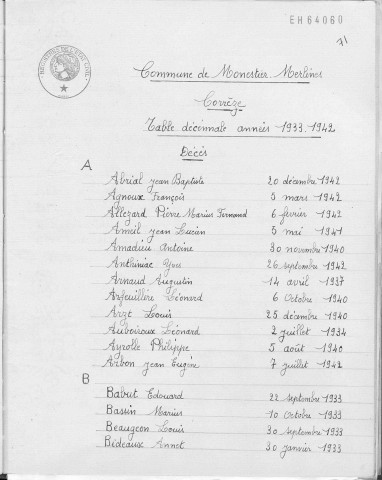 EH64060
71
Commune de Monestier Merlines
Corrèze
Table décennale années 1933-1942
Décès
A
Abrial Jean Baptiste 20 décembre 1942
Agnoux François 5 mars 1942
Allegard Pierre Marius Fernand 6 février 1942
Ameil Jean Lucien 5 mai 1941
Amadieu Antoine 30 novembre 1940
Anthiniac Yves 26 septembre 1942
Arnaud Augustin 14 avril 1937
Arfeuillère Léonard 6 Octobre 1940
Louis 25 décembre 1940
Auboiroux Léonard 2 juillet 1934
Ayrolle Philippe 5 août 1940
Arbon Jean Eugène 7 juillet 1942
B
Babut Edouard 22 septembre 1933
Bassin Marius 10 Octobre 1933
Beaugeon Louis 30 septembre 1933
Bédeaux Annet 30 janvier 1933